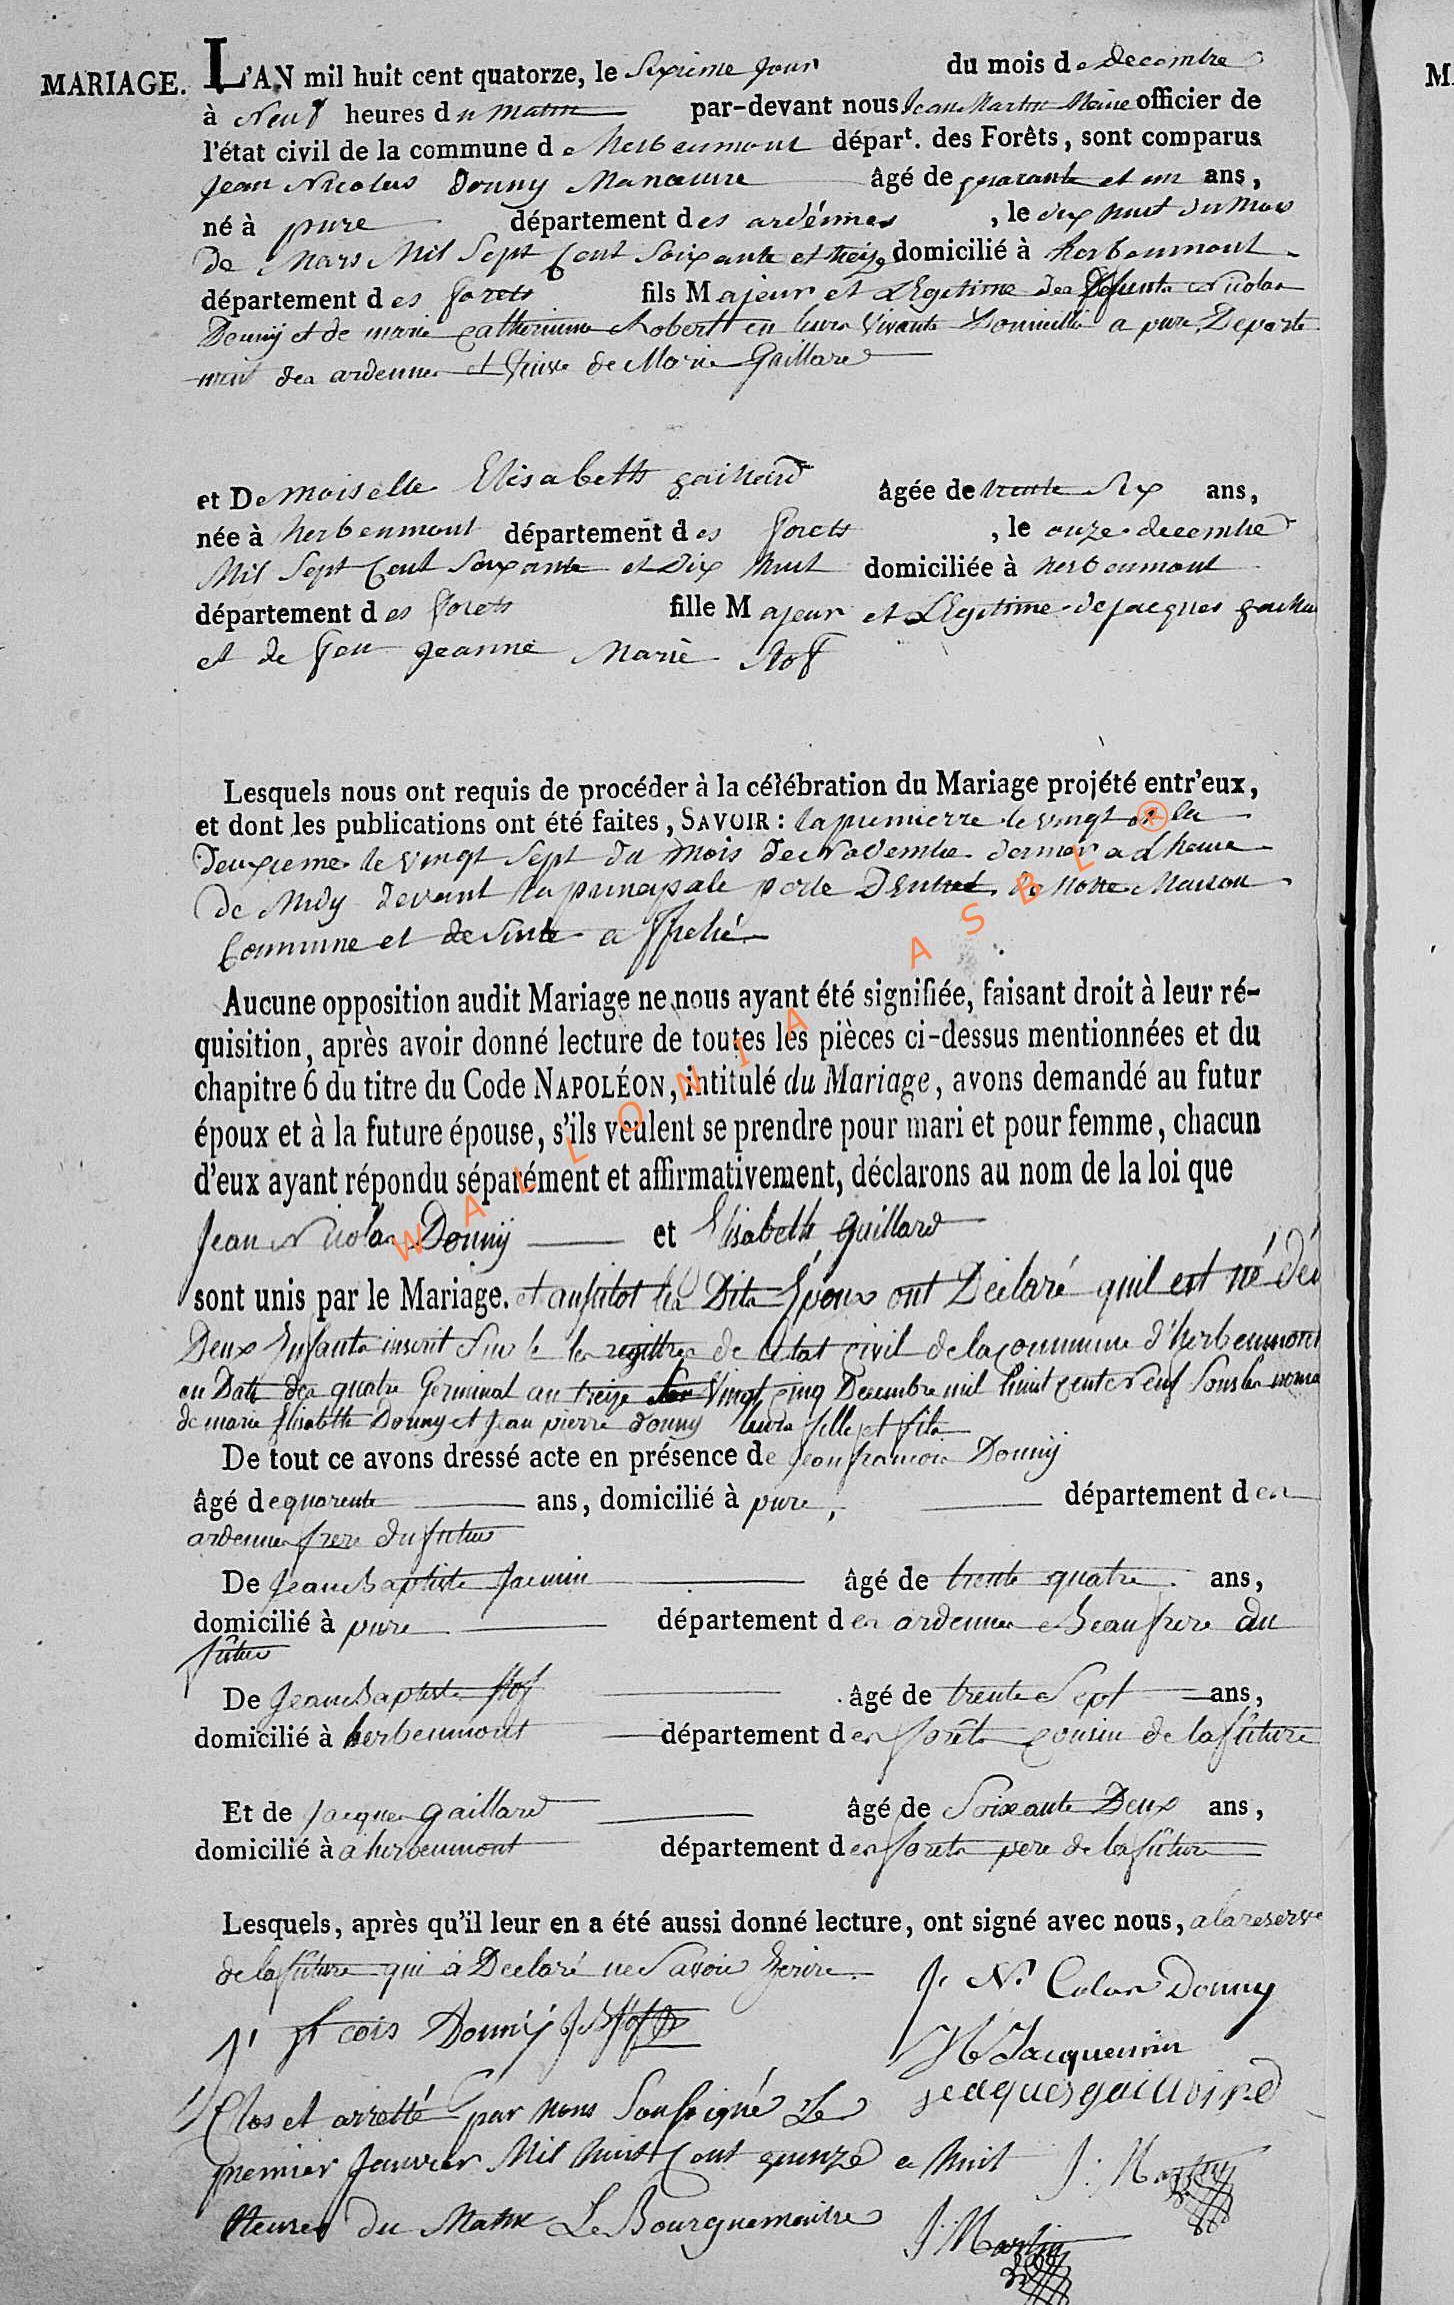 MARIAGE.
L'AN mil huit cent quatorze, le Sixieme jour du mois de decembre
à Neuf heures du matin par-devant nous Jean Martin Maire officier de
l'état civil de la commune de herbeumont départ. des Forêts, sont comparus
Jean Nicolas Donny Manœuvre âgé de quarante et un ans,
né à pure département des ardénnes, le dix huit du Mois
de Mars Mil Sept Cent Soixante et treize domicilié à herbeumont
département des forets fils Majeur et LEgitime des defunts Nicolas
Donny et de marie catherinne Robert en leurs Vivants Domicillié a pure Departe
ment des ardennes et Veuve de Marie Gaillard
et Demoiselle Elisabeth gaillard âgée de trente Six ans,
née à herbeumont département des forets, le onze decembre
Mil Sept Cent Soixante et Dix huit domiciliée à herbeumont
département des forets fille Majeur et LEgitime de jacques gailla
et de feu Jeanne Marie Stof
Lesquels nous ont requis de procéder à la célébration du Mariage projété entr'eux,
et dont les publications ont été faites, SAVOIR : la premierre le vingt et la
deuxieme le vingt Sept du mois de Novembre dernier a Lheure
de Midy devant la principale porte DEntré de Notre Maison
Commune et de Suite a ffiché
Aucune opposition audit Mariage ne nous ayant été signifiée, faisant droit à leur ré-
quisition, après avoir donné lecture de toutes les pièces ci-dessus mentionnées et du
chapitre 6 du titre du Code NAPOLÉON, intitulé du Mariage, avons demandé au futur
époux et à la future épouse, s'ils veulent se prendre pour mari et pour femme, chacun
d'eux ayant répondu séparément et affirmativement, déclarons au nom de la loi que
Jean Nicolas Donny et Elisabeth gaillard
sont unis par le Mariage. et ausitot les Dits Epoux ont Déclaré quil est né déu
Deux Enfants inscrit Sur le les registres de létat civil de la commune d'herbeumont
en Date des quatre Germinal an treize Vingt cinq Decembre mil huit cent Neuf Sous les noms
de marie Elisabeth Donny et Jean pierre donny leurs fille et fils
De tout ce avons dressé acte en présence de Jean francois Donny
âgé de quarente ans, domicilié à pure, département des
ardennes frere du futur
De Jean Baptiste Jacmin âgé de trente quatre ans,
domicilié à pure département des ardennes Beaufrere du
futur
De Jean Baptiste Stof âgé de trente Sept ans,
domicilié à herbeumont département des forêts cousin de la future
Et de Jacques gaillard âgé de Soixante Deux ans,
domicilié à a herbeumont département des forets pere de la future
Lesquels, après qu'il leur en a été aussi donné lecture, ont signé avec nous, a la reserve
de la future qui à Declaré ne Savoir Ecrire
J. N. Colas Donny
J. f cois Donnÿ JB Stof
Jacquemin
jeacques gaillaird
Clos et arretté par Nous Sousigné Le
premier Janvier Mil huit Cent quinze a huit J: Martin
Heures du Matin Le Bourguemaitre J: Martin
WALLONIA ASBL ®
M